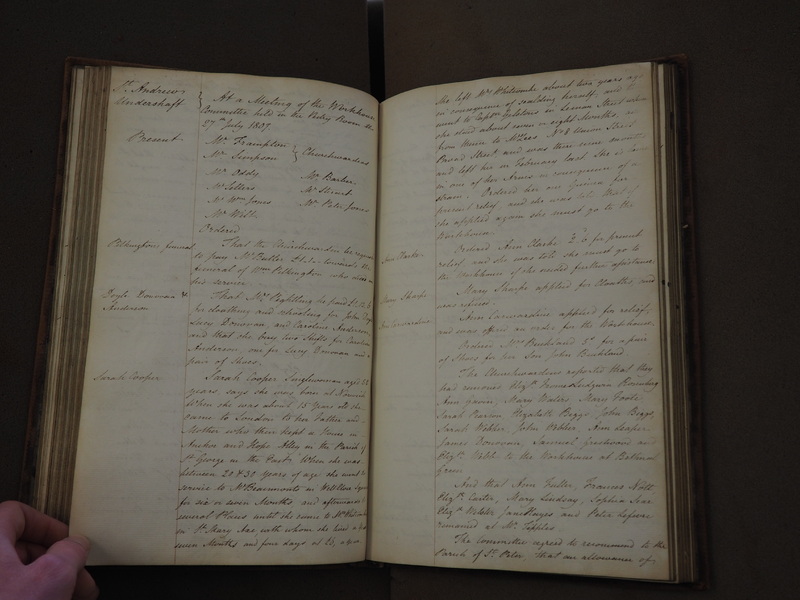 St. Andrew
Undershaft
At a Meeting of the Workhouse
Committee held in the Vestry Room the
27th July 1807
Present
Mr. Frampton
Mr. Simpson
Churchwardens
Mr. Oddy
Mr. Barber
Mr. Sellers
Mr. Wm. Jones
Mr. Peter Jones
Mr. Wills
Ordered
Pilkingtons funeral
That the Churchwarden be
to pay Mr. Fuller £1.1.- towards the
funeral of Wm. Pilkington who
his service
Doyle Donovan &
Anderson
That Mr. be paid
for cloathing and for John
Lucy Donovan, and Caroline Anderson
and that she buy two Shifts for Caroline
Anderson, one for Lucy Donovan and a
pair of Shoes.
Sarah Cooper
Sarah Cooper Singlewoman aged
years, says she was born at
When she was about 15 Years old she
came to London to her Father and
Mother who then kept a House in
Anchor and Hope Alley in the Parish of
St. George in the East. When she was
between 20 & 30 years of age she went to
service to Mr. Beaumonts in Wellclose Square
for six or seven Months and afterwards
several Places until she came to Mr.
in St. Mary Axe with whom she lived
seven Months and four days at
She left Mrs. Whitcombe about two years ago
in consequence of scalding herself, and
went to in Leman Street where
she staid about seven or eight Months,
from thence to No. 8 Union Street
Broad Street, and was there some months
and left her in February last. She is
in one of her Arms in consequence of a
strain. Ordered her one Guinea for
present relief, and she was told that if
she applied again she must go to the
Workhouse.
Ann Clarke
Ordered Ann Clarke for present
relief, and she was told she must go to
the Workhouse if she wanted further assistance
Mary Sharpe
Mary Sharpe applied for Cloaths, and
was refused.
Ann Carwardine
Ann Carwardine applied for relief,
and was offered an order for the Workhouse.
Ordered Mrs. Buckland 5s. for a pair
of Shoes for her Son John Buckland.
The Churchwardens reported that they
had removed Elizth.
Ann Gavin, Mary Waters, Mary Foote
Sarah Pearson Elizabeth Beggs John Beggs,
Sarah Webber John Webber, Ann
James Donovan, Samuel and
Elizth. Webb to the Workhouse at Bethnal
Green
And that Ann Fuller, Frances Nott
Elizth. Carter, Mary Lindsay, Sophia
Elizth. Webster, Jane and Peter
remained at Mr. Tipples
The Committee agreed to recommend to the
Parish of St. Peter, that an allowance of